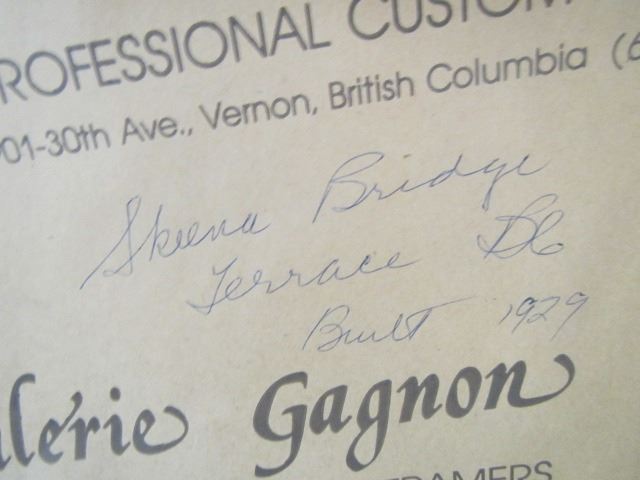 PROFESSIONAL CUSTOM
01-30th Ave., Vernon, British Columbia (6
Skeena Bridge
Terrace BC
Built 1929
alérie Gagnon
FRAMERS